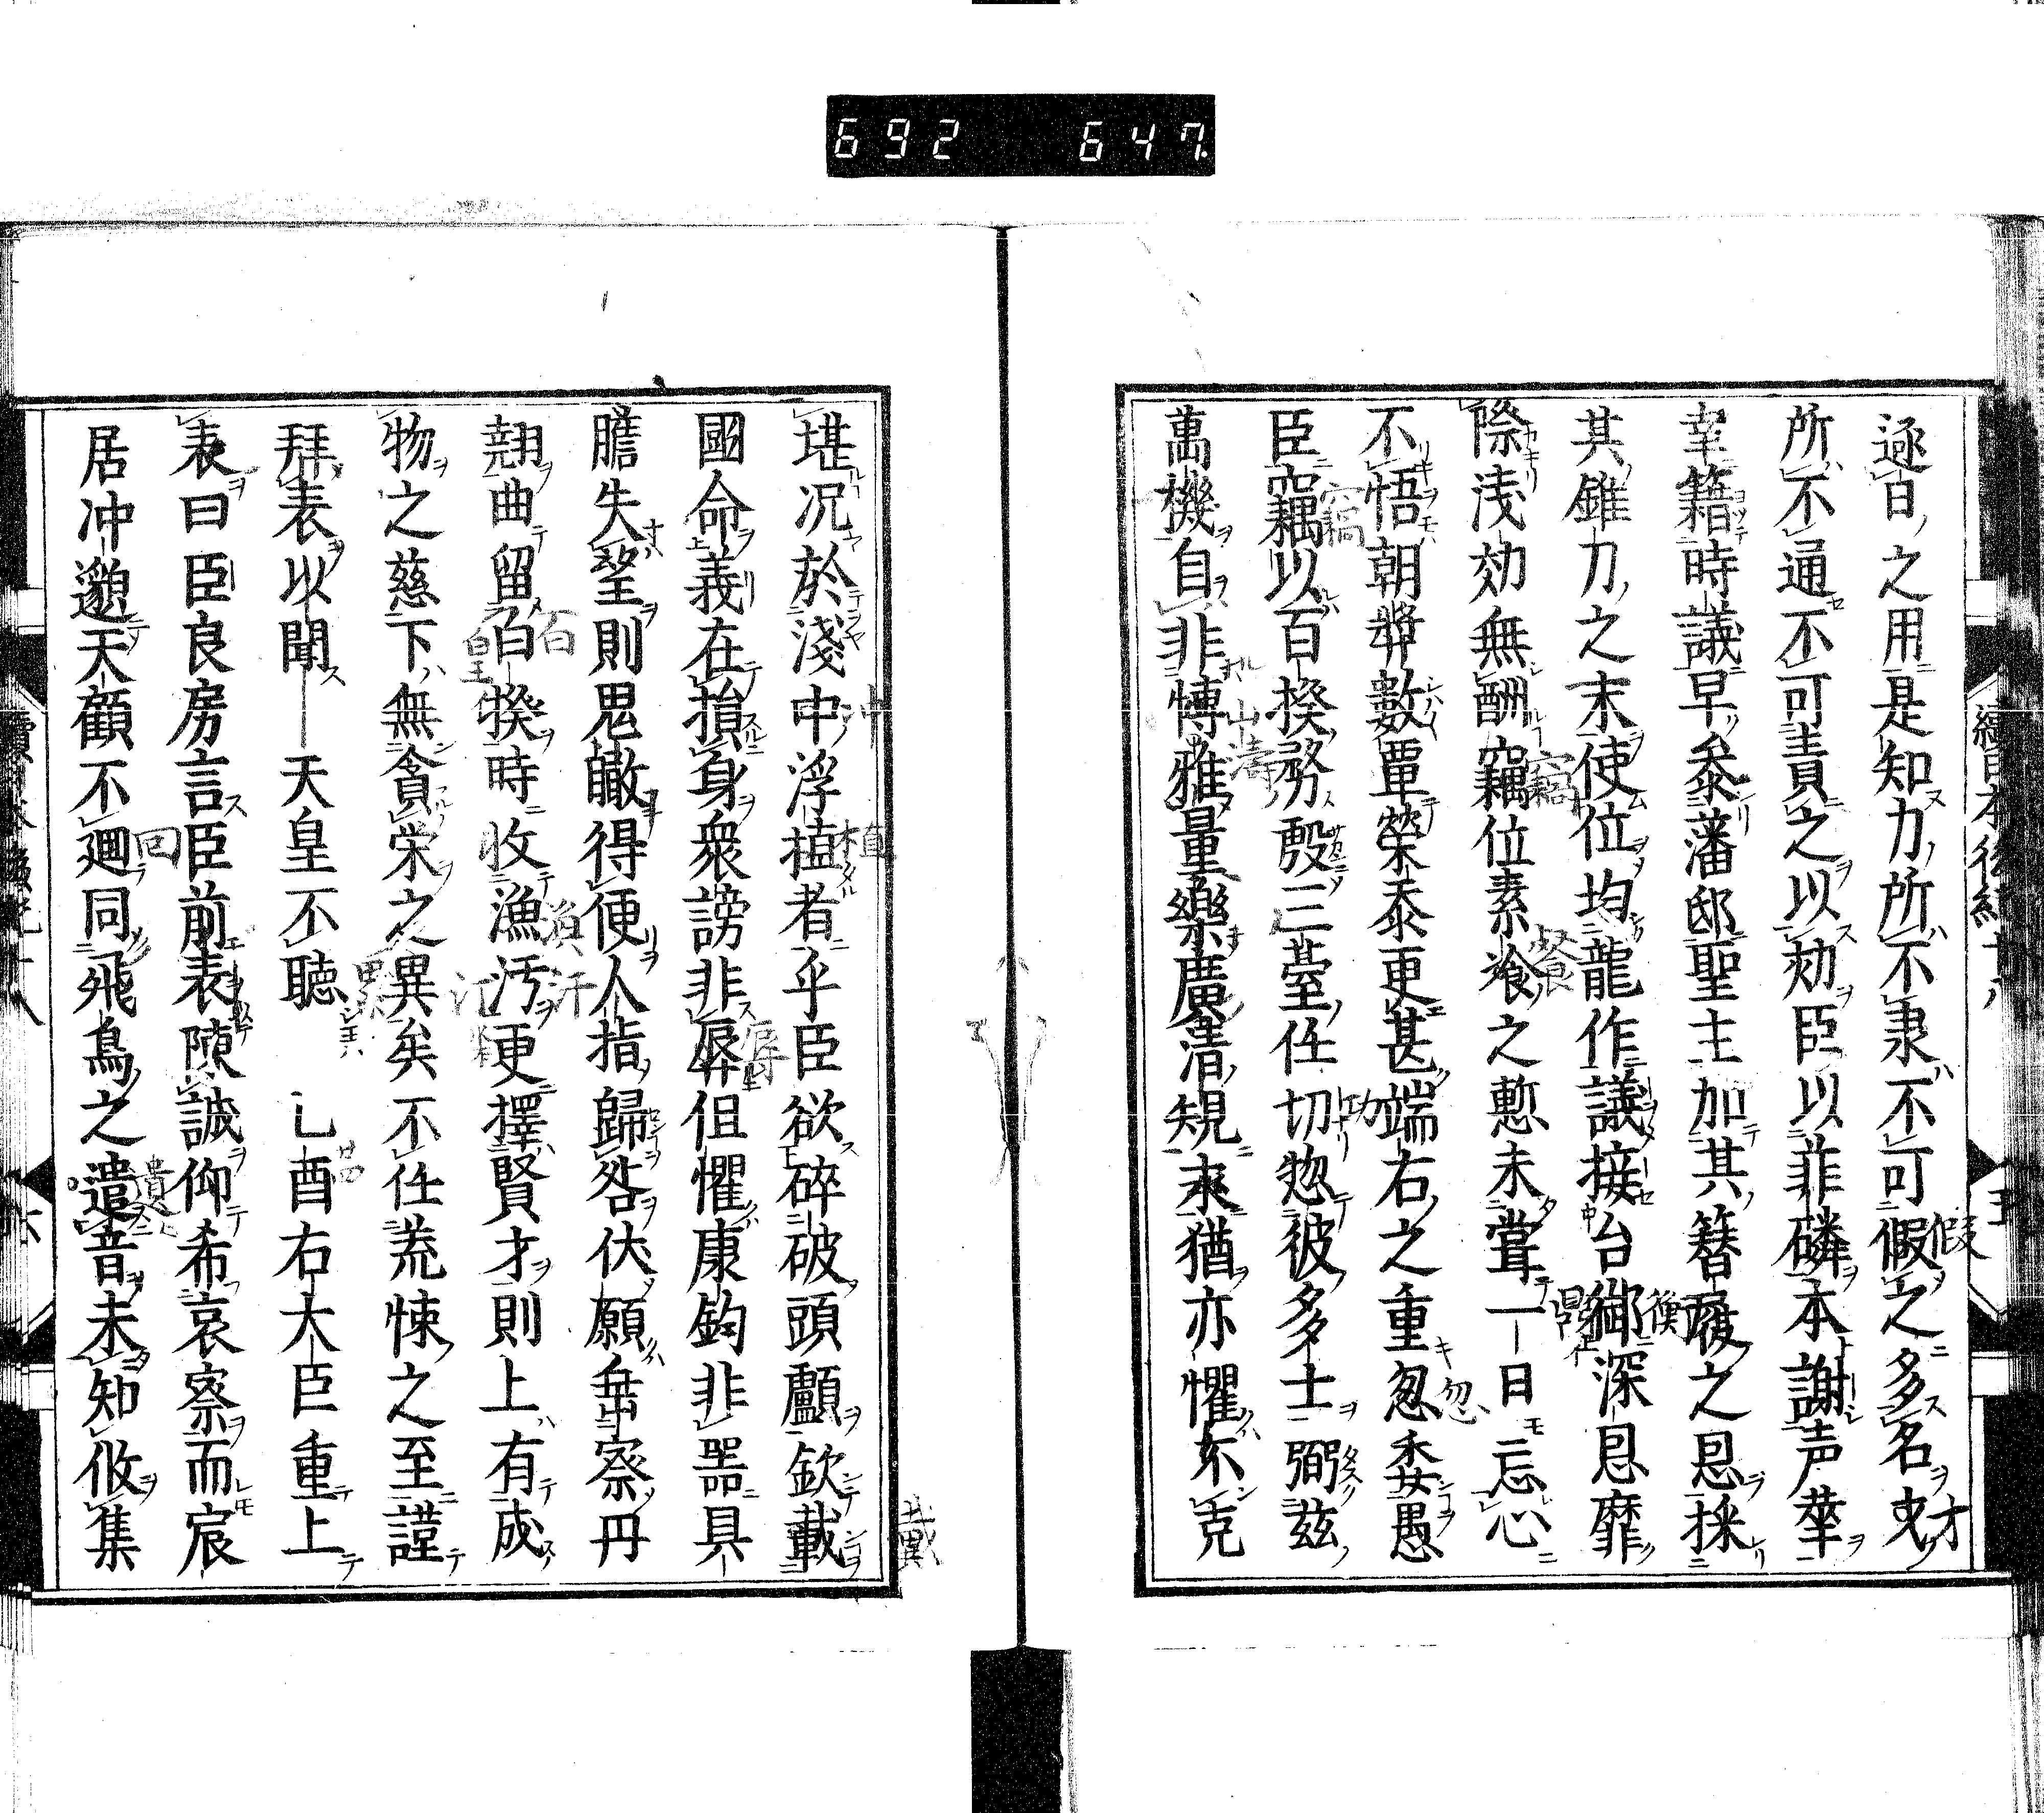 692 647
逐日之用是知力所不隶不可假之多名才
所不通不可責之以効臣以菲磷本謝声華
幸籍時議早忝藩邸聖主加其簪履之恩採
其錐刀之末使位均龍作議接台鄉深恩靡
際浅効無酬竊位素飡之慙未甞一日忘心
不悟朝奬數覃榮忝更甚端右之重忽委愚
臣竊以百揆務殷三臺任切惣彼多士弼茲
萬機自非博雅量樂廣清規来猶亦懼不克
堪况於淺中浮植者乎臣欲碎破頭顱欽載
國命義在損身衆謗非辱但懼康鈞非噐具
膽失望則思轍得便人指歸咎伏願垂察丹
翹曲留白揆時收漁汚更擇賢才則上有成
物之慈下無貪栄之異矣不任荒悚之至謹
拜表以聞 天皇不聴 乙酉右大臣重上
表曰臣良房言臣前表陳誠仰希哀察而宸
居冲邈天顧不廻同飛鳥之遺音未知攸集